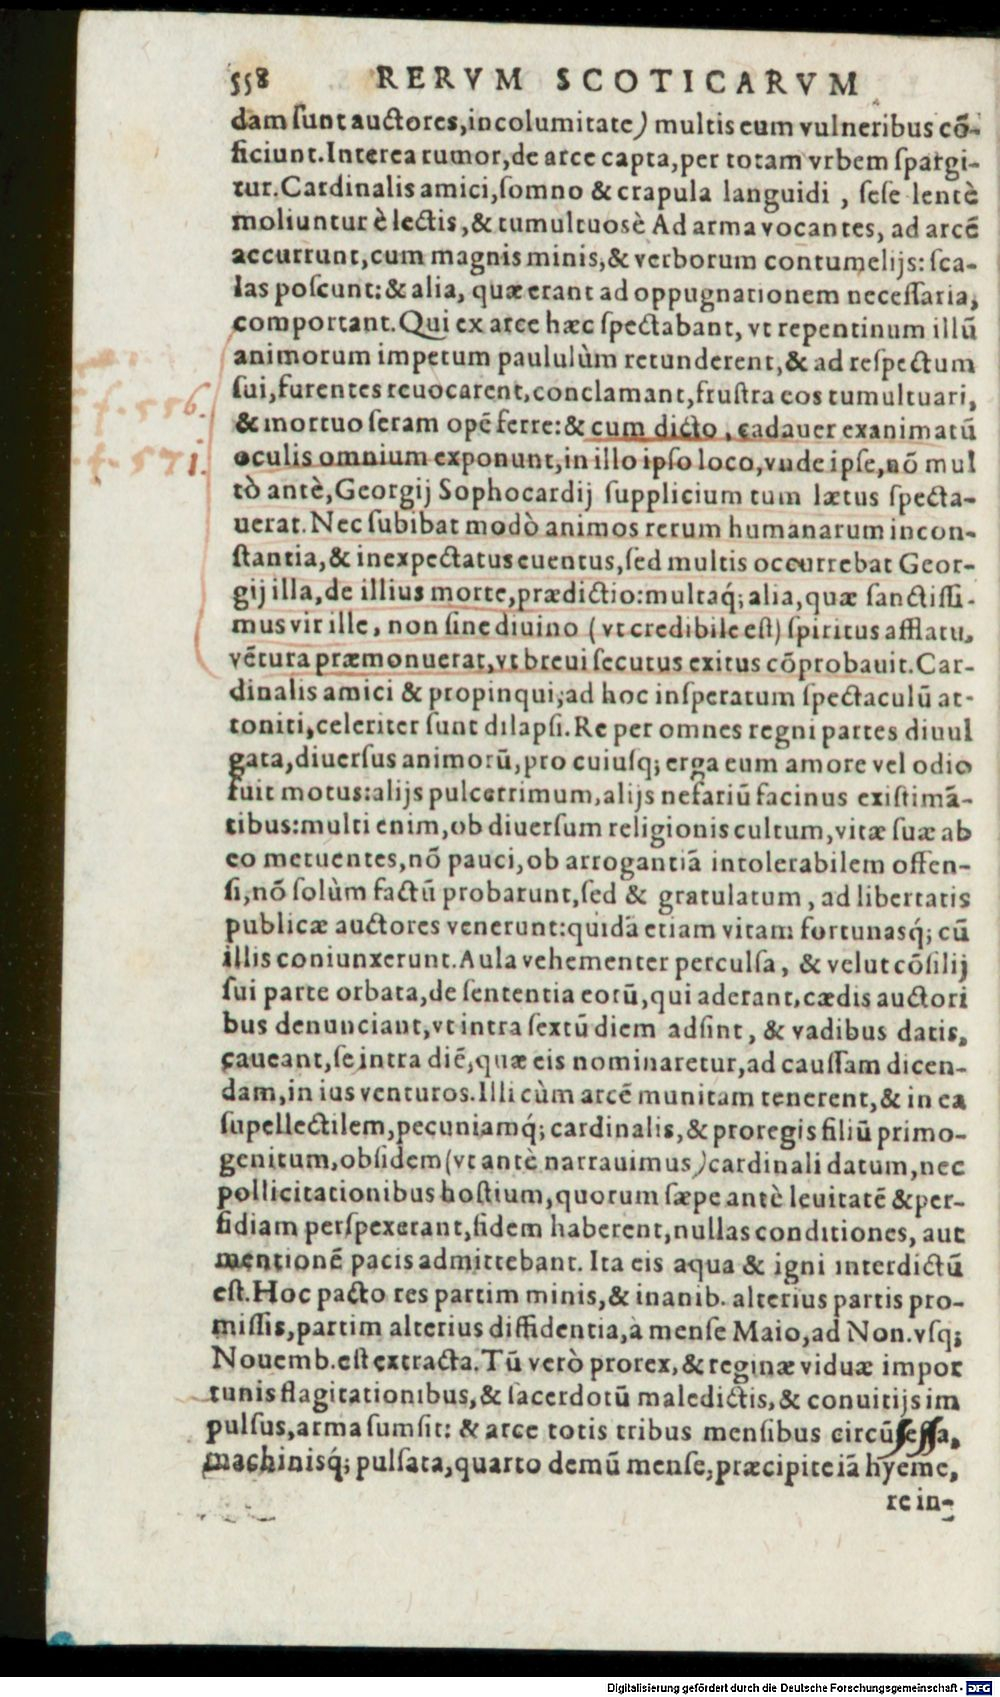 558 RERVM SCOTICARVM
dam ſunt auctores, incolumitate) multis eum vulneribus cõ-
ficiunt. Interea rumor, de arce capta, per totam vrbem ſpargi-
tur. Cardinalis amici, ſomno & crapula languidi, ſeſe lentè
moliuntur è lectis, & tumultuosè Ad arma vocantes, ad arcẽ
accurrunt, cum magnis minis, & verborum contumelijs: ſca-
las poſcunt: & alia, quæ erant ad oppugnationem neceſſaria,
comportant. Qui ex arce hæc ſpectabant, vt repentinum illũ
animorum impetum paululùm retunderent, & ad reſpectum
ſui, furentes reuocarent, conclamant, fruſtra eos tumultuari,
& mortuo ſeram opẽ ferre: & cum dicto, cadauer exanimatũ
oculis omnium exponunt, in illo ipſo loco, vnde ipſe, nõ mul
tò antè, Georgij Sophocardij ſupplicium tum lætus ſpecta-
uerat. Nec ſubibat modò animos rerum humanarum incon-
ſtantia, & inexpectatus euentus, ſed multis occurrebat Geor-
gij illa, de illius morte, prædictio: multaq́; alia, quæ ſanctiſſi-
mus vir ille, non ſine diuino (vt credibile eſt) ſpiritus afflatu,
vẽtura præmonuerat, vt breui ſecutus exitus cõprobauit. Car-
dinalis amici & propinqui, ad hoc inſperatum ſpectaculũ at-
toniti, celeriter ſunt dilapſi. Re per omnes regni partes diuul
gata, diuerſus animorũ, pro cuiuſq; erga eum amore vel odio
fuit motus: alijs pulcerrimum, alijs nefariũ facinus exiſtimã-
tibus: multi enim, ob diuerſum religionis cultum, vitæ ſuæ ab
eo metuentes, nõ pauci, ob arrogantiã intolerabilem offen-
ſi, nõ ſolùm factũ probarunt, ſed & gratulatum, ad libertatis
publicæ auctores venerunt: quidã etiam vitam fortunasq́; cũ
illis coniunxerunt. Aula vehementer perculſa, & velut cõſilij
ſui parte orbata, de ſententia eorũ, qui aderant, cædis auctori
bus denunciant, vt intra ſextũ diem adſint, & vadibus datis,
caueant, ſe intra diẽ, quæ eis nominaretur, ad cauſſam dicen-
dam, in ius venturos. Illi cùm arcẽ munitam tenerent, & in ea
ſupellectilem, pecuniamq́; cardinalis, & proregis filiũ primo-
genitum, obſidem (vt antè narrauimus) cardinali datum, nec
pollicitationibus hoſtium, quorum ſæpe antè leuitatẽ & per-
fidiam perſpexerant, fidem haberent, nullas conditiones, aut
mentionẽ pacis admittebant. Ita eis aqua & igni interdictũ
eſt. Hoc pacto res partim minis, & inanib. alterius partis pro-
miſſis, partim alterius diffidentia, à menſe Maio, ad Non. vſq;
Nouemb. eſt extracta. Tũ verò prorex, & reginæ viduæ impor
tunis flagitationibus, & ſacerdotũ maledictis, & conuitijs im
pulſus, arma ſumſit: & arce totis tribus menſibus circũſeſſa,
machinisq́; pulſata, quarto demũ menſe, præcipite iã hyeme,
re in-
f. 556.
f. 571.
Digitalisierung gefördert durch die Deutsche Forschungsgemeinschaft - DFG